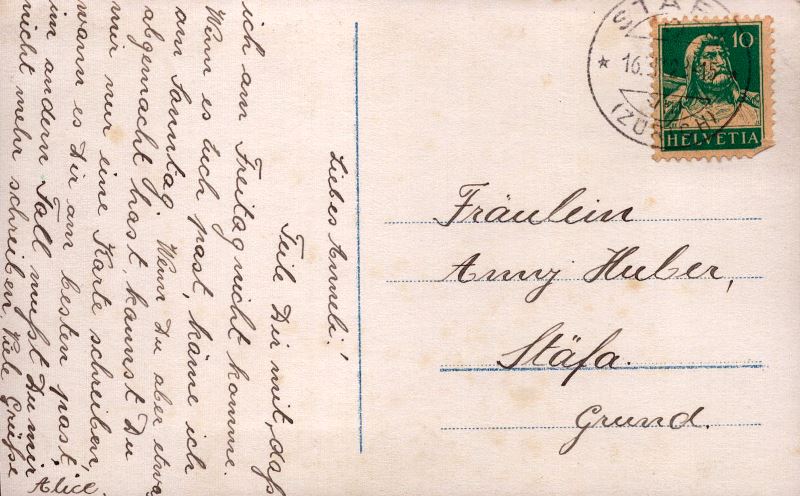 Liebes Anneli!
Teile Dir mit, daß
ich am Freitag nicht komme.
Wenn es Euch past, käme ich
am Sonntag. Wenn Du aber etwas
abgemacht hast, kannst Du
mir nur eine Karte schreiben,
wann es Dir am besten past,
im andern Fall mußt Du mir
nicht mehr schreiben. Viele Grüße
Alice.
STÄFA
(ZÜRICH)
10
HELVETIA
Fräulein
Anny Huber,
Stäfa.
Grund.